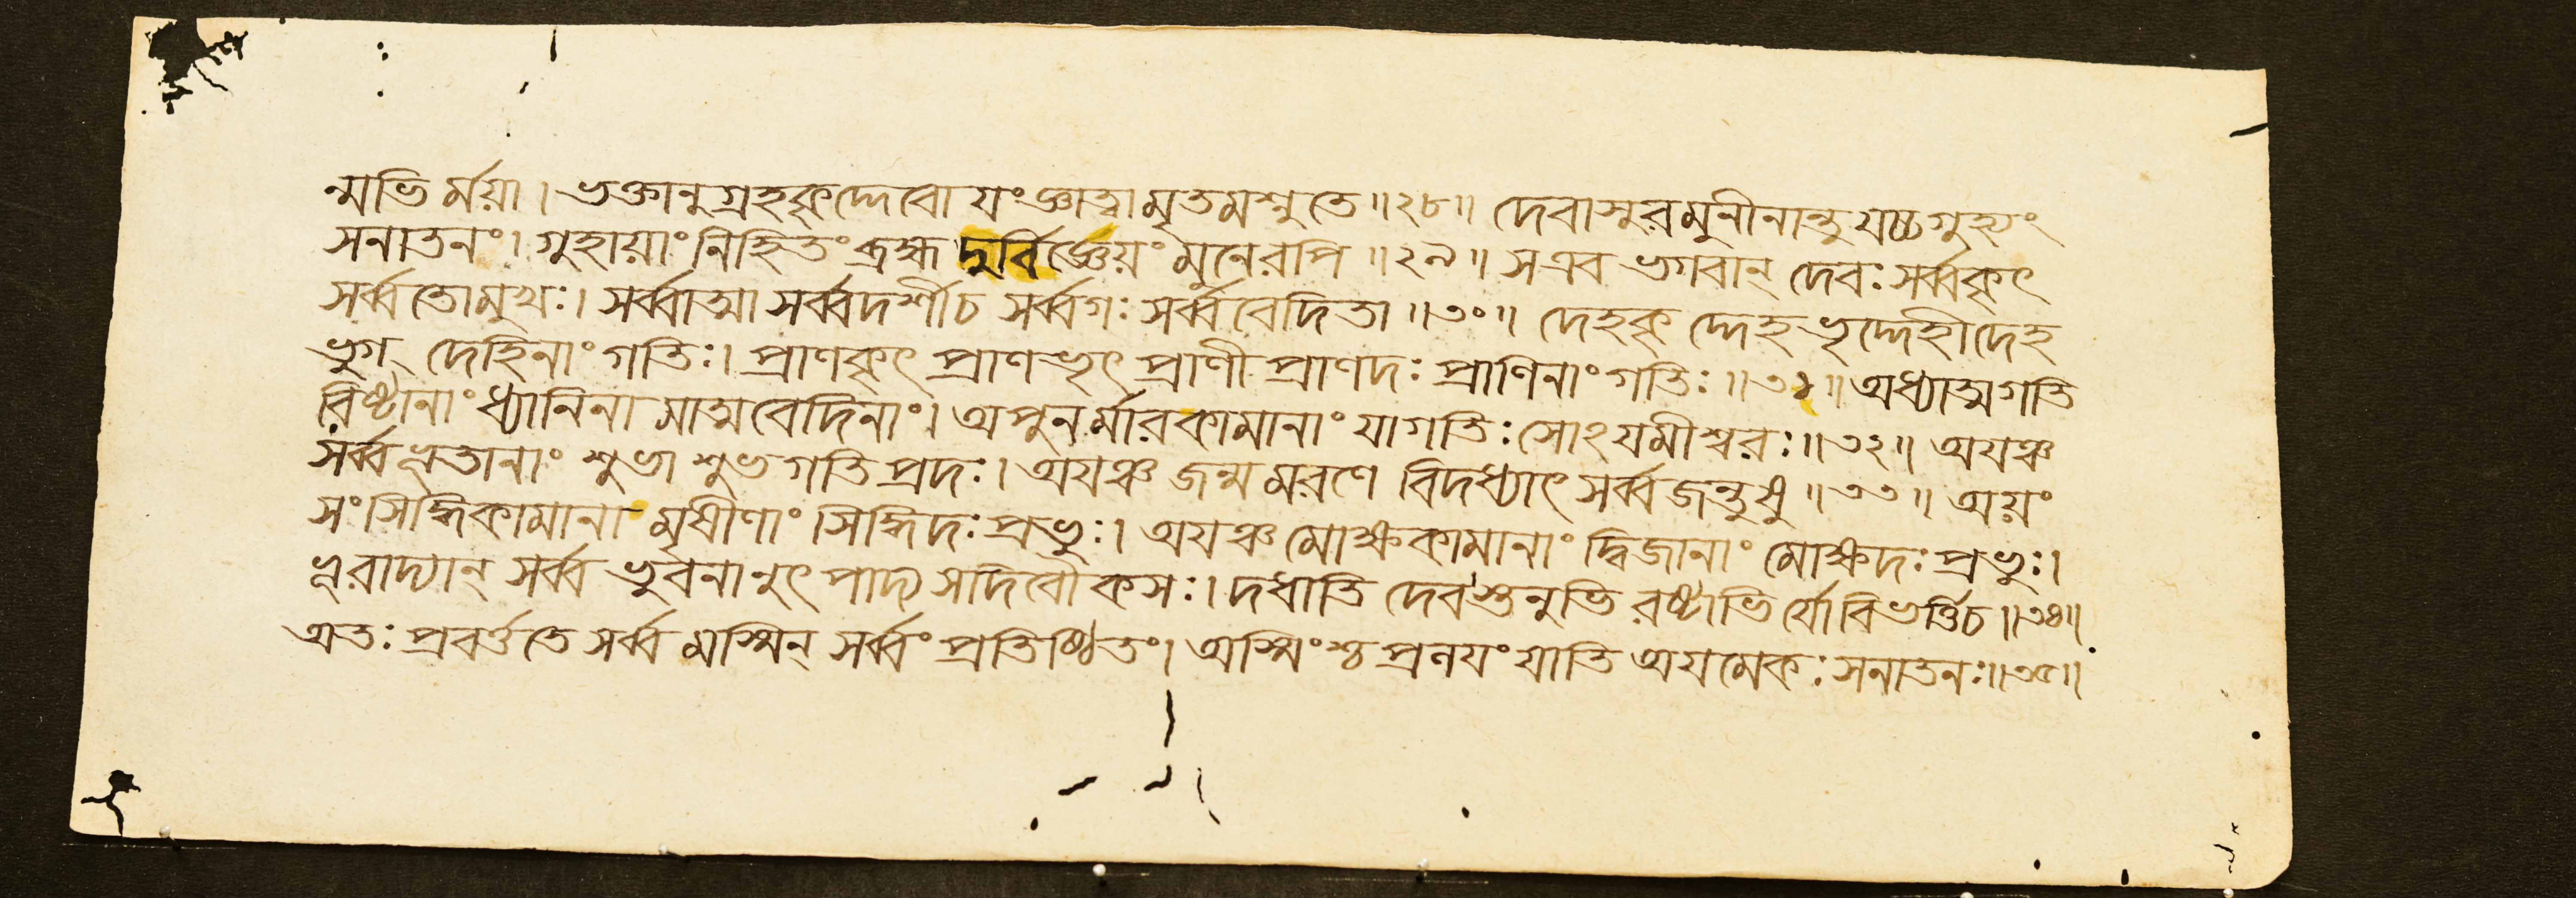 ন্মভি র্ময়া। ভক্তানুগ্রহকৃদ্দেবো যংজ্ঞাত্বামৃতমশ্নুতে॥২৮॥ দেবাসুরমুনীনান্তু যচ্চগুহ্যং
সনাতনং। গুহায়াং নিহিতং ব্রহ্ম দুর্বিজ্ঞেয়ং মুনেরপি॥২৯॥ সএব ভগবান্ দেবঃ সর্ব্বকৃৎ
সর্ব্বতোমুখঃ। সর্ব্বাত্মা সর্ব্বদর্শীচ সর্ব্বগঃ সর্ব্ববেদিতা॥৩০॥ দেহকৃ দ্দেহভৃদ্দেহীদেহ
ভুগ্ দেহিনাং গতিঃ। প্রাণকৃৎ প্রাণভৃৎ প্রাণী প্রাণদঃ প্রাণিনাং গতিঃ॥৩১॥ অধ্যাত্মগতি
রিষ্টানাং ধ্যানিনা মাত্মবেদিনাং। অপুনর্মারকামানাং যাগতিঃ সোঽযমীশ্বরঃ॥৩২॥ অযঞ্চ
সর্ব্বভূতানাং শুভাশুভগতিপ্রদঃ। অযঞ্চ জন্মমরণে বিদধ্যাৎ সর্ব্বজন্তুষু॥৩৩॥ অয়ং
সংসিদ্ধিকামানা মৃষীণাং সিদ্ধিদঃ প্রভুঃ। অযঞ্চ মোক্ষকামানাং দ্বিজানাং মোক্ষদঃ প্রভুঃ।
ভূরাদ্যান্ সর্ব্বভুবনানুৎপাদ্য সদিবৌকসঃ। দধাতি দেবস্তনুভি রষ্টাভি র্যো বিভর্ত্তিচ॥৩৪॥
অতঃ প্রবর্ত্ততে সর্ব্ব মস্মিন্ সর্ব্বং প্রতিষ্ঠিতং। অস্মিংশ্চ প্রলযং যাতি অযমেকঃ সনাতনঃ॥৩৫॥